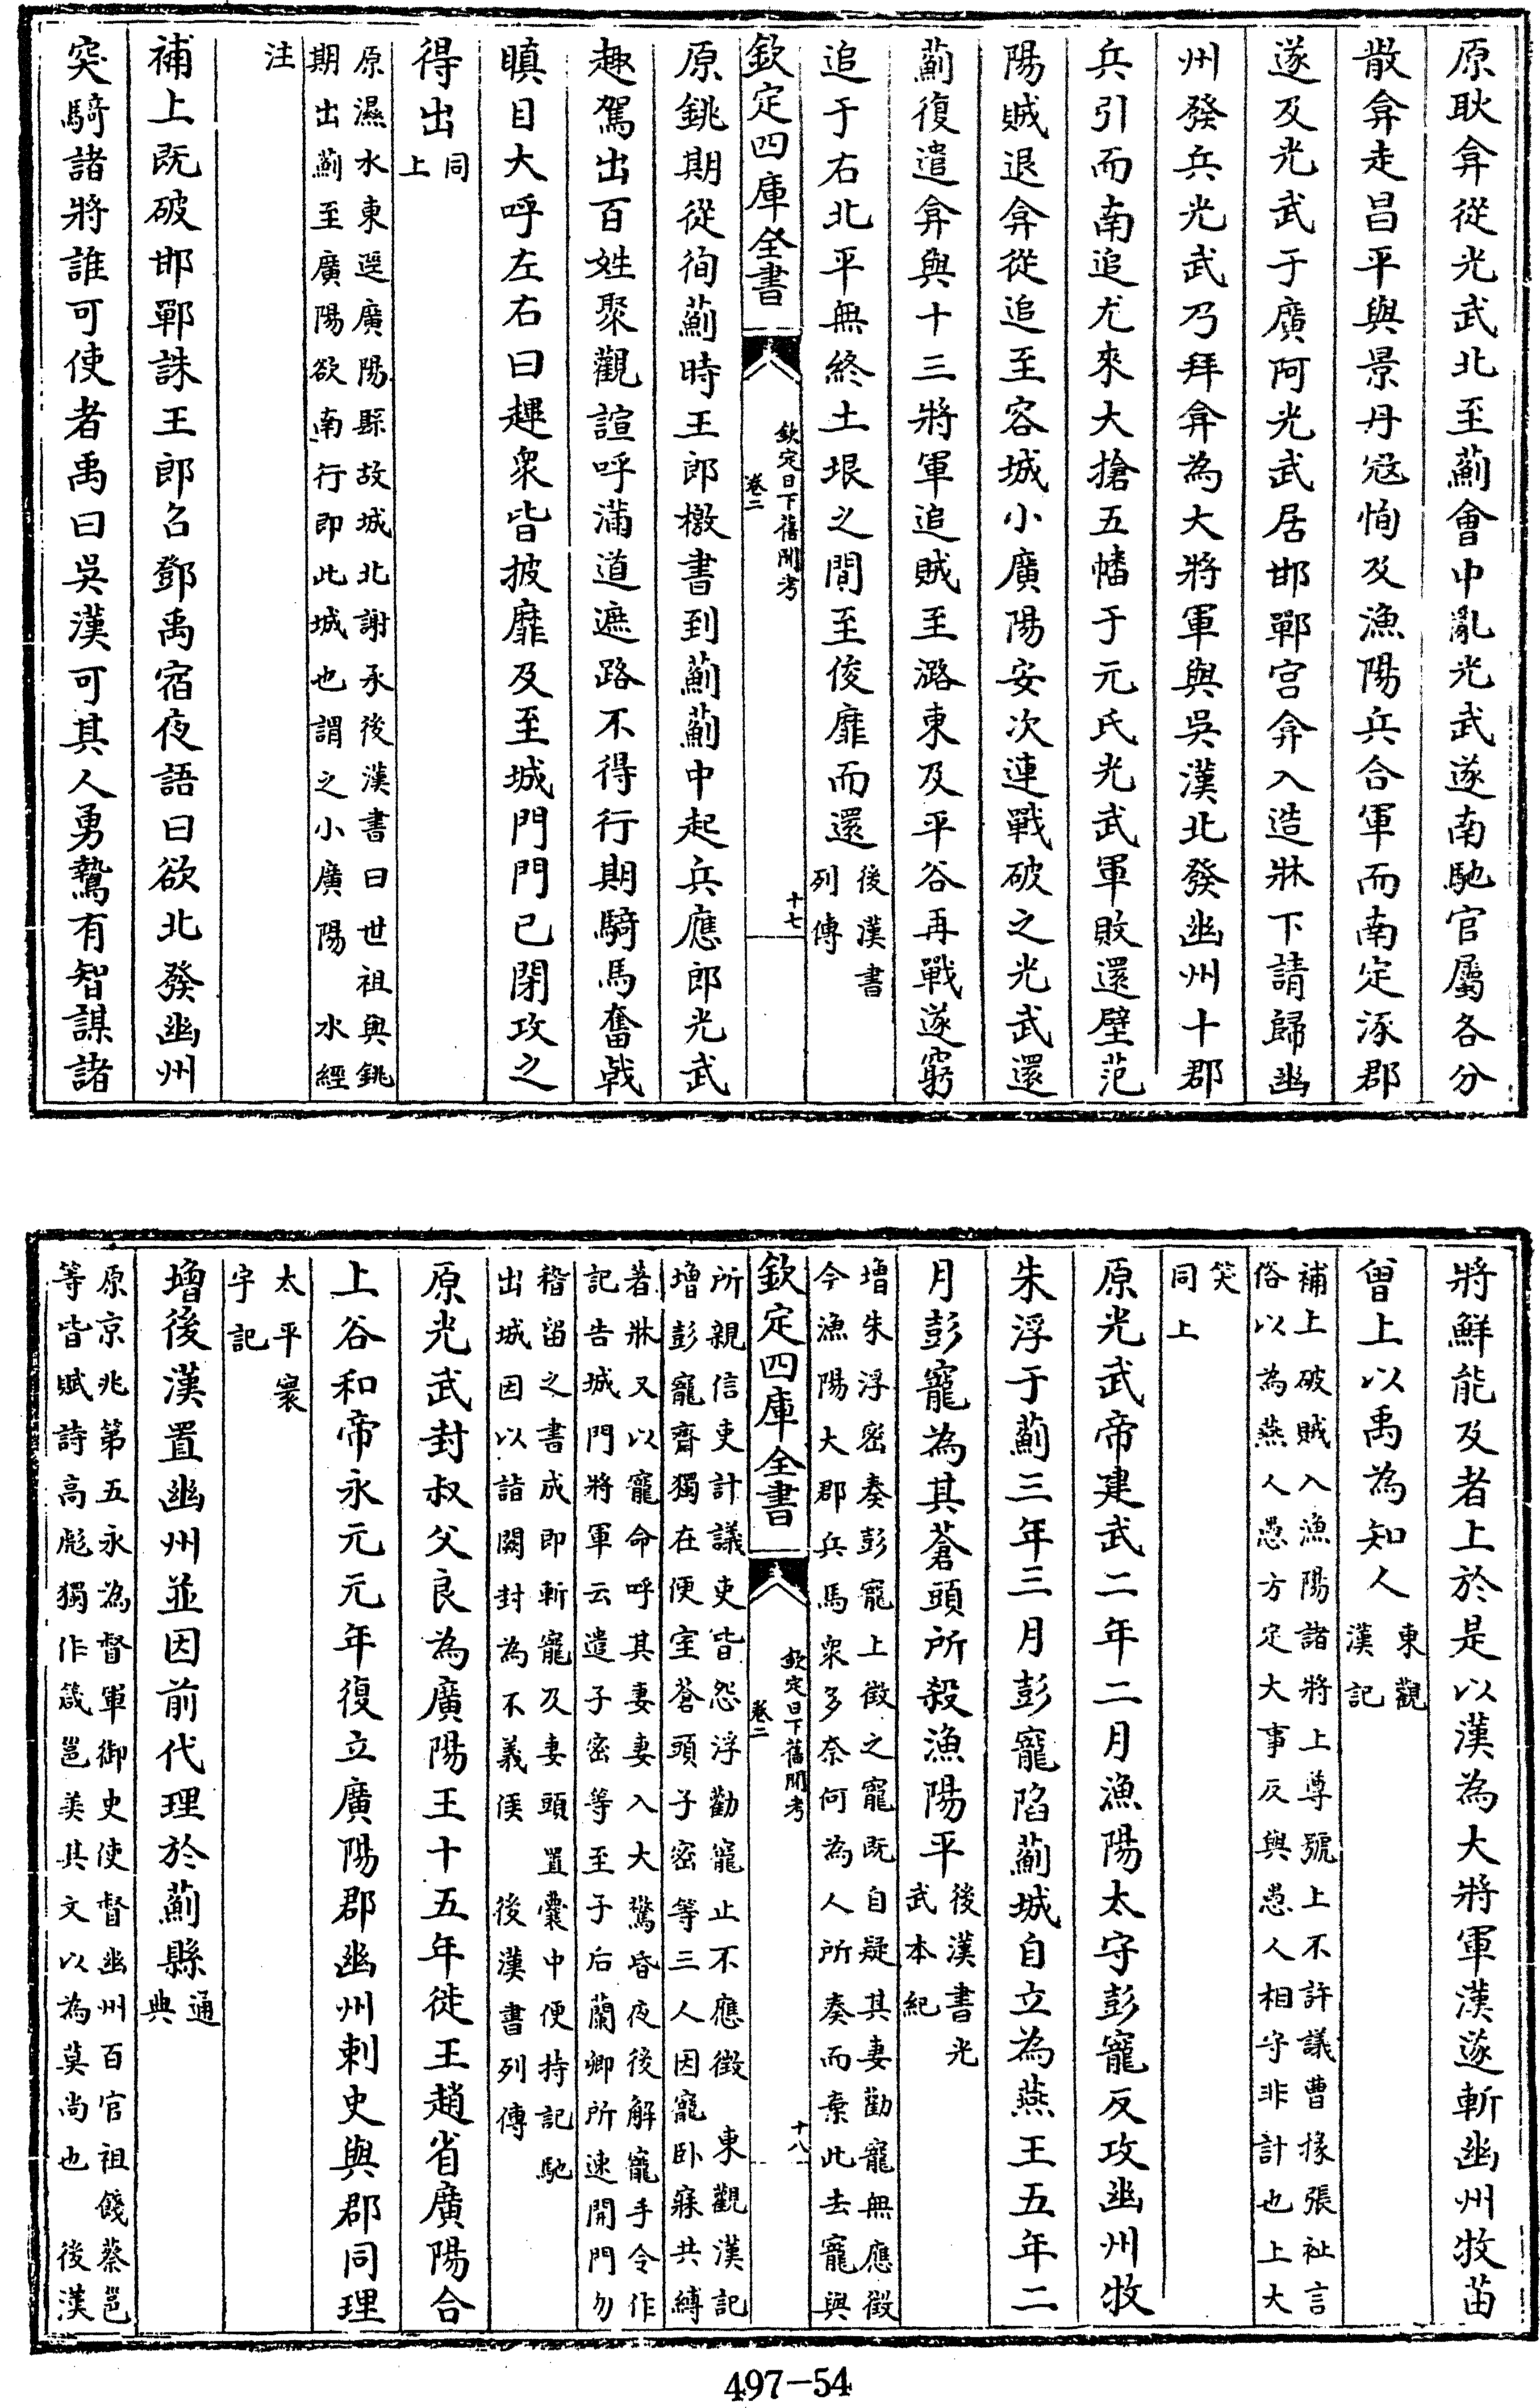 原耿弇從光武北至薊會中亂光武遂南馳官屬各分
散弇走昌平與景丹寇恂及漁陽兵合軍而南定涿郡
遂及光武于廣阿光武居邯鄲宫弇入造牀下請歸幽
州發兵光武乃拜弇為大將軍與吳漢北發幽州十郡
兵引而南追尤來大搶五幡于元氏光武軍敗還壁范
陽賊退弇從追至容城小廣陽安次連戰破之光武還
薊復遣弇與十三將軍追賊至潞東及平谷再戰遂窮
追于右北平無終土垠之間至俊靡而還後漢書列傳
欽定四庫全書
欽定日下舊聞考
卷二
十七
原銚期從徇薊時王郎檄書到薊薊中起兵應郎光武
趣駕出百姓聚觀諠呼滿道遮路不得行期騎馬奮戟
瞋目大呼左右曰趯衆皆披靡及至城門門已閉攻之
得出同上
原濕水東逕廣陽縣故城北謝承後漢書曰世祖與銚
期出薊至廣陽欲南行即此城也謂之小廣陽 水經
注
補上既破邯鄲誅王郎召鄧禹宿夜語曰欲北發幽州
突騎諸將誰可使者禹曰吳漢可其人勇鷙有智謀諸
將鮮能及者上於是以漢為大將軍漢遂斬幽州牧苗
曾上以禹為知人東觀漢記
補上破賊入漁陽諸將上尊號上不許議曹掾張祉言
俗以為燕人愚方定大事反與愚人相守非計也上大
笑
同上
原光武帝建武二年二月漁陽太守彭寵反攻幽州牧
朱浮于薊三年三月彭寵陷薊城自立為燕王五年二
月彭寵為其蒼頭所殺漁陽平後漢書光武本紀
增朱浮密奏彭寵上徵之寵既自疑其妻勸寵無應徵
今漁陽大郡兵馬衆多奈何為人所奏而棄此去寵與
欽定四庫全書
欽定日下舊聞考
卷二
十八
所親信吏計議吏皆怨浮勸寵止不應徵 東觀漢記
增彭寵齋獨在便室蒼頭子密等三人因寵卧寐共縛
著牀又以寵命呼其妻妻入大驚昏夜後解寵手令作
記告城門將軍云遣子密等至子后蘭卿所速開門勿
稽留之書成即斬寵及妻頭置囊中便持記馳
出城因以詣闕封為不義侯 後漢書列傳
原光武封叔父良為廣陽王十五年徙王趙省廣陽合
上谷和帝永元元年復立廣陽郡幽州刺史與郡同理
太平寰宇記
增後漢置幽州並因前代理於薊縣通典
原京兆第五永為督軍御史使督幽州百官祖餞蔡邕
等皆賦詩高彪獨作箴邕美其文以為莫尚也 後漢
497-54